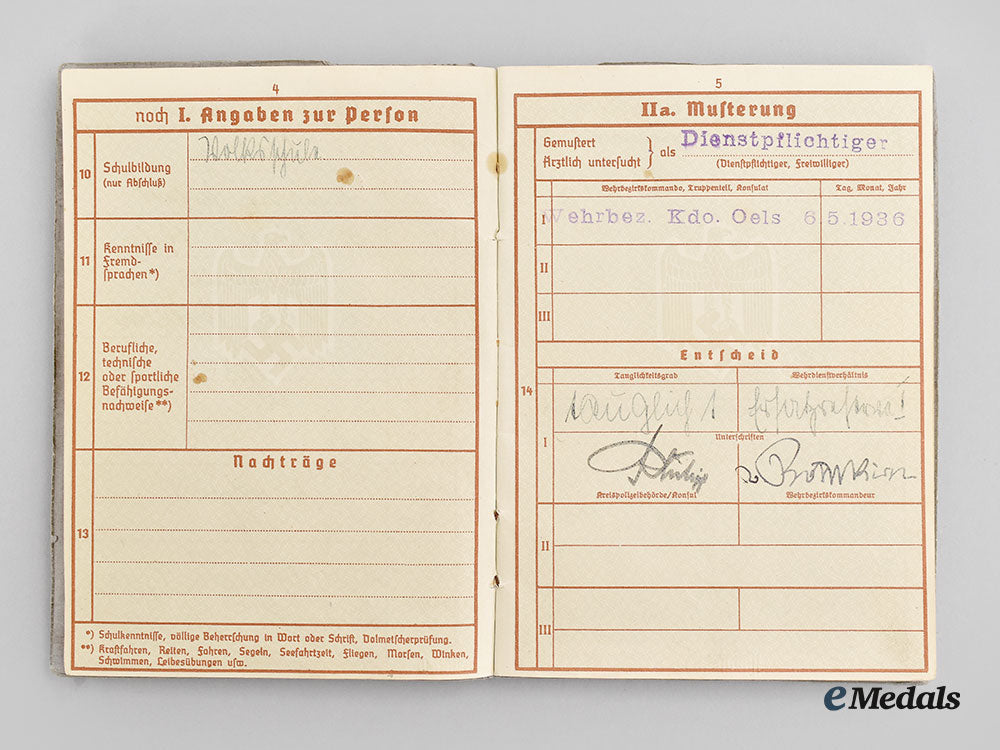 4
noch I. Angaben zur Person
10
Schulbildung
(nur Abschluß)
Volksschule
11
Kenntnisse in
Fremd-
sprachen*)
12
Berufliche,
technische
oder sportliche
Befähigungs-
nachweise**)
Nachträge
13
*) Schulkenntnisse, völlige Beherrschung in Wort oder Schrift, Dolmetscherprüfung.
**) Kraftfahren, Reiten, Fahren, Segeln, Seefahrtzeit, Fliegen, Morsen, Winken,
Schwimmen, Leibesübungen usw.
5
IIa. Musterung
Gemustert
Ärztlich untersucht } als Dienstpflichtiger
(Dienstpflichtiger, Freiwilliger)
Wehrbezirkskommando, Truppenteil, Konsulat Tag, Monat, Jahr
I Wehrbez. Kdo. Oels 6 5.1936
II
III
Entscheid
14
Tauglichkeitsgrad Wehrdienstverhältnis
tauglich 1 Ersatzreserve I
I
Unterschriften
Kreispolizeibehörde/Konsul Wehrbezirkskommandeur
II
III
eMedals